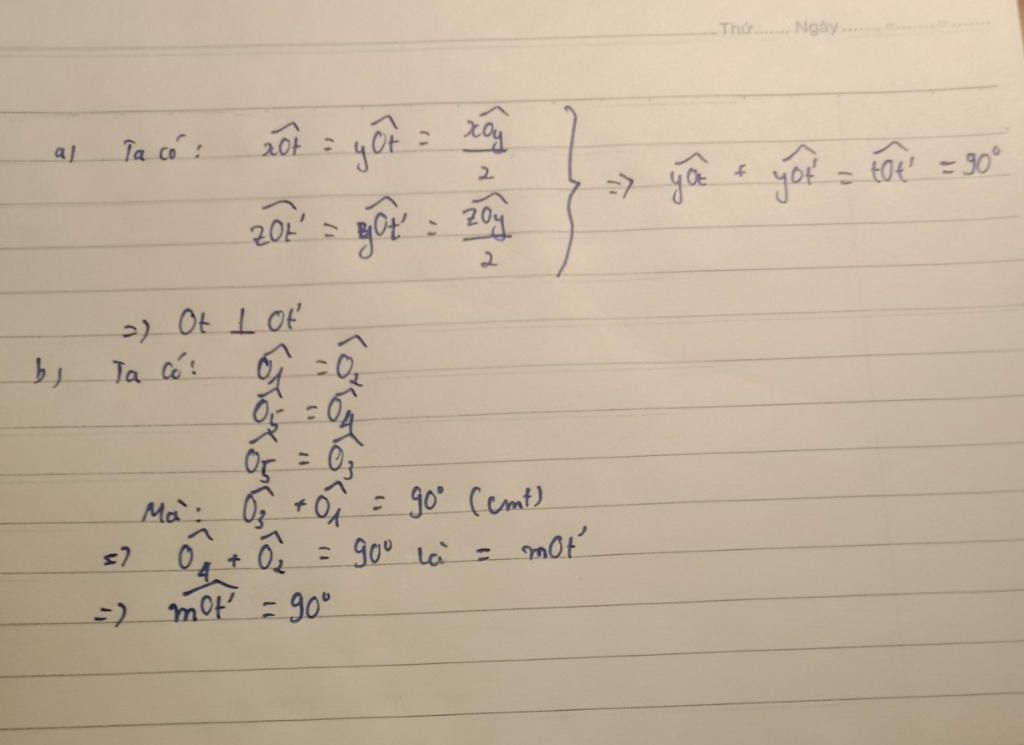 Thứ....... Ngày ......................
a) Ta có: xOt = yOt = xOy/2
zOt' = yOt' = zOy/2
} => yOt + yOt' = tOt' = 90°
=> Ot ⊥ Ot'
b) Ta có: O1 = O2
O5 = O4
O5 = O3
Mà: O3 + O1 = 90° (cmt)
=> O4 + O2 = 90° là = mOt'
=> mOt' = 90°